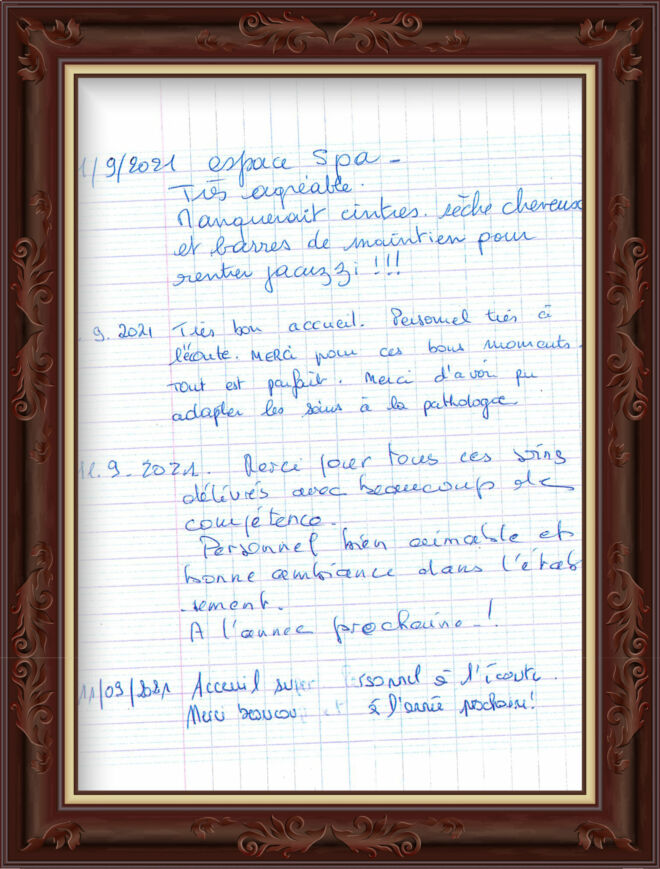 1/9/2021 espace spa -
Très agréable.
Manquerait cintres. sèche cheveux
et barres de maintien pour
rentrer jacuzzi !!!
9. 2021 Très bon accueil. Personnel très à
l'écoute. MERCI pour ces bons moments.
Tout est parfait. Merci d'avoir pu
adapter les soins à la pathologie
9. 2021. Merci pour tous ces soins
délivrés avec beaucoup de
compétence.
Personnel bien aimable et
bonne ambiance dans l'étab
.sement.
A l'année prochaine_!
11/09/2021 Acceuil super personnel à l'écoute.
Merci beaucoup et à l'année prochaine!